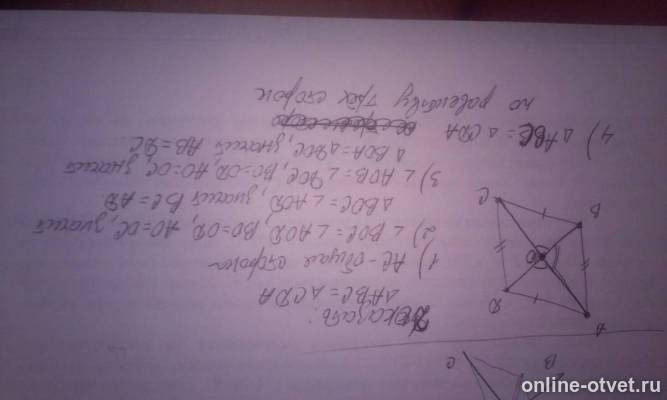 Доказать:
△ABC = △CDA
1) AC - общая сторона
2) ∠BOC = ∠AOD, BO=OD, AO=OC, значит
△BOC = ∠AOD, значит BC = AD
3) ∠AOB = ∠DOC, BO=OD, AO=OC, значит
△BOA = △DOC, значит AB = DC
4) △ABC = △CDA
по равенству трёх сторон
A
B
C
D
O
C
B
online-otvet.ru